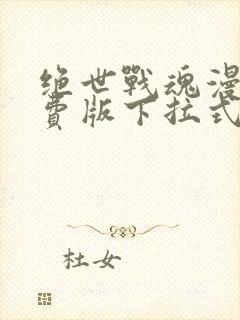 绝世戰魂漫
費版下拉式
杜女